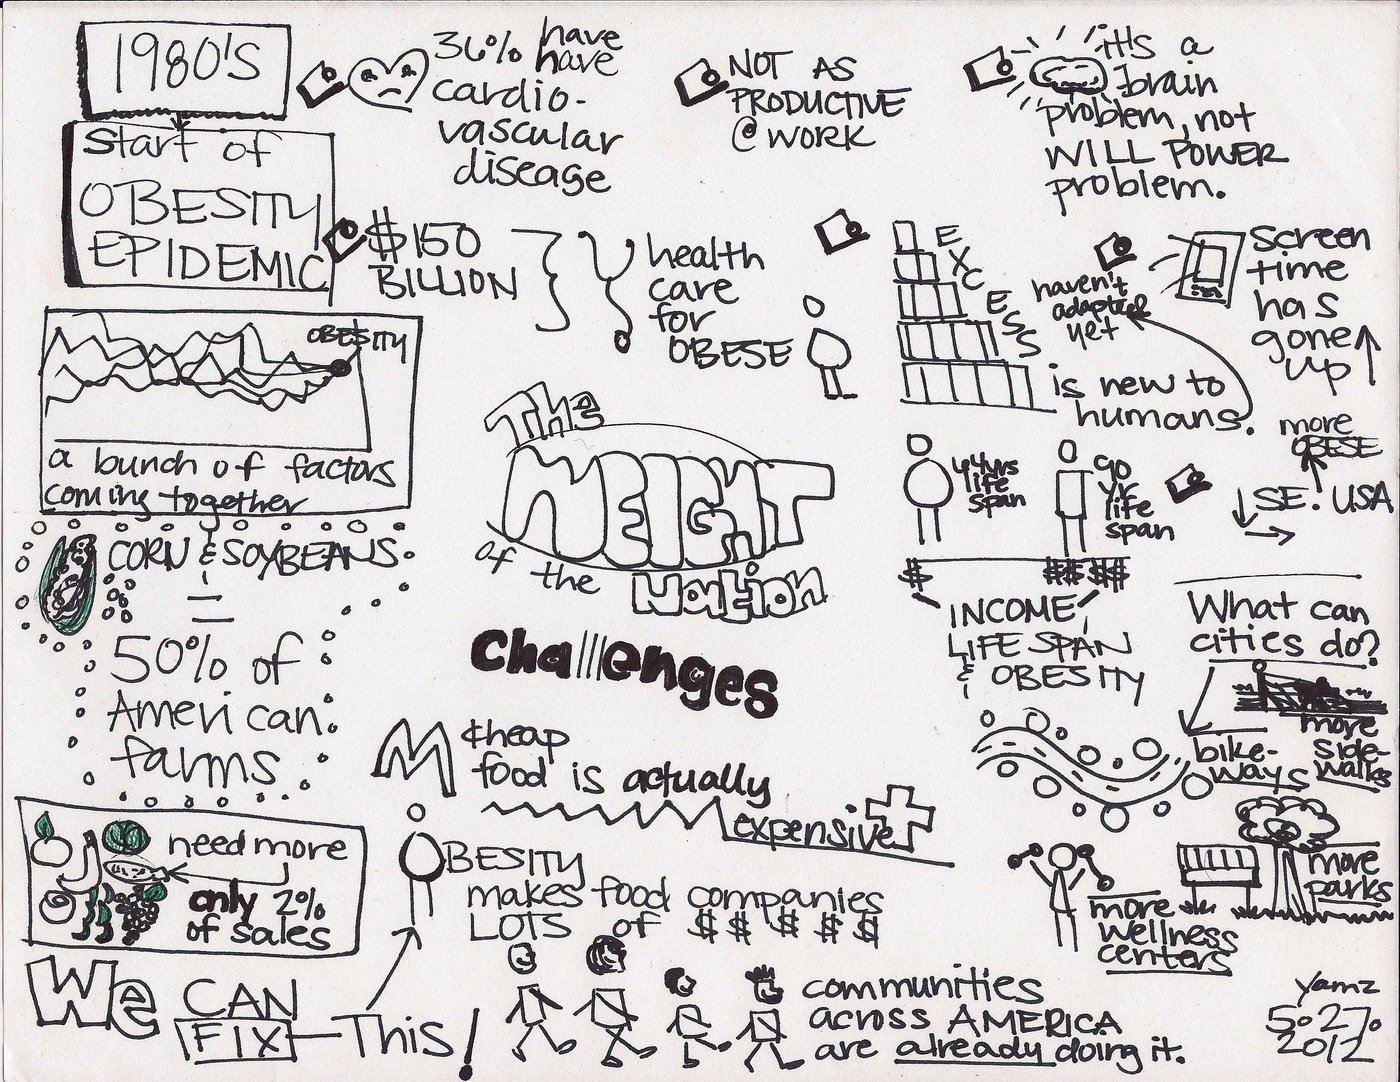 1980'S
Start of
OBESITY
EPIDEMIC
36% have
have
cardio-
vascular
disease
NOT AS
PRODUCTIVE
@ WORK
it's a
brain
problem, not
WILL POWER
problem.
$150
BILLION
health
care
for
OBESE
EXCESS
is new to
humans.
haven't
adapted
yet
screen
time
has
gone
up
OBESITY
a bunch of factors
coming together
The
WEIGHT
of the
Nation
Challenges
44yrs
life
span
90
yr
life
span
more
OBESE
SE. USA
$
$$ $$
INCOME,
LIFE SPAN
& OBESITY
CORN & SOYBEANS
=
50% of
American
farms
What can
cities do?
bike-
ways
more
side-
walks
more
parks
more
wellness
centers
M
cheap
food is actually
expensive
need more
only 2%
of sales
OBESITY
makes food companies
LOTS of $ $ $ $ $
We CAN
FIX This!
communities
across AMERICA
are already doing it.
Yamz
5.27.
2012